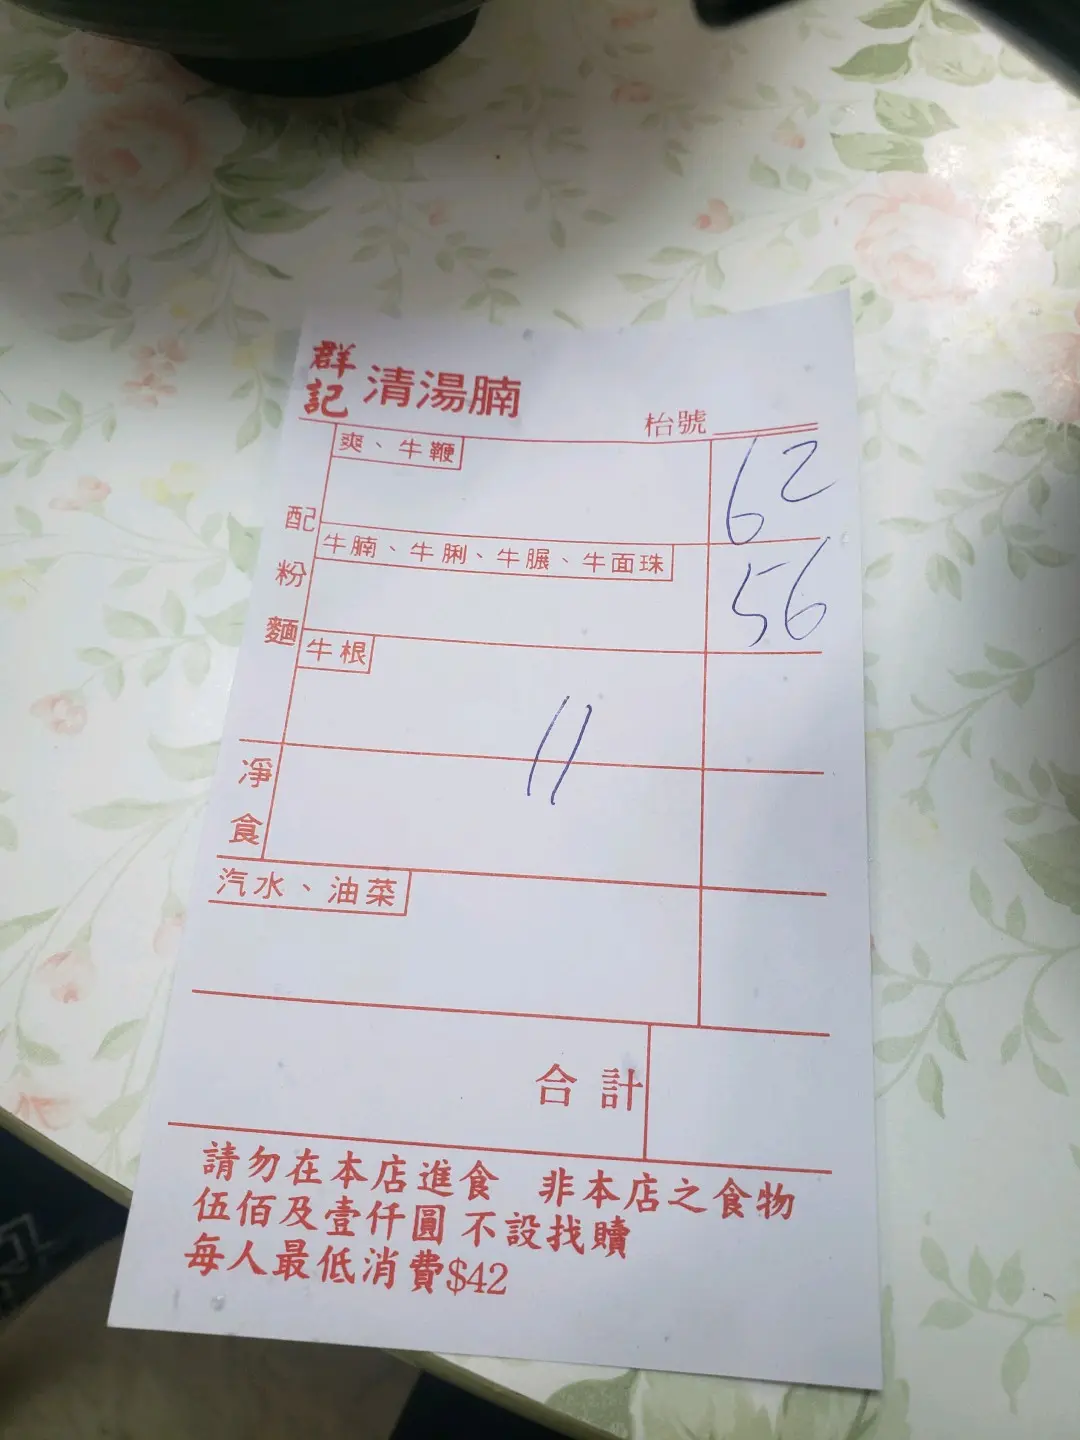 群記 清湯腩
枱號
爽、牛鞭
62
配粉麵
牛腩、牛脷、牛𦟌、牛面珠
56
牛根
11
淨食
汽水、油菜
合計
請勿在本店進食 非本店之食物
伍佰及壹仟圓 不設找贖
每人最低消費$42